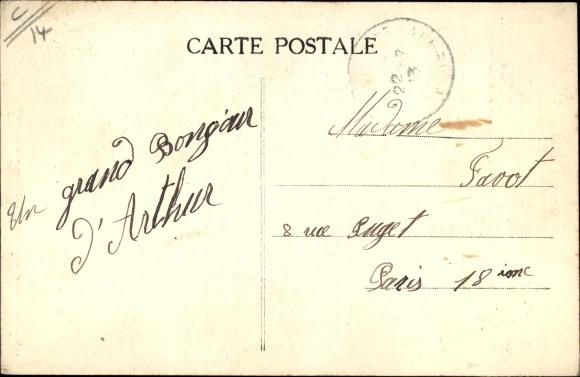 C/14
CARTE POSTALE
Un grand Bonjour
d'Arthur
Madame
Favot
8 rue Puget
Paris 18 ime